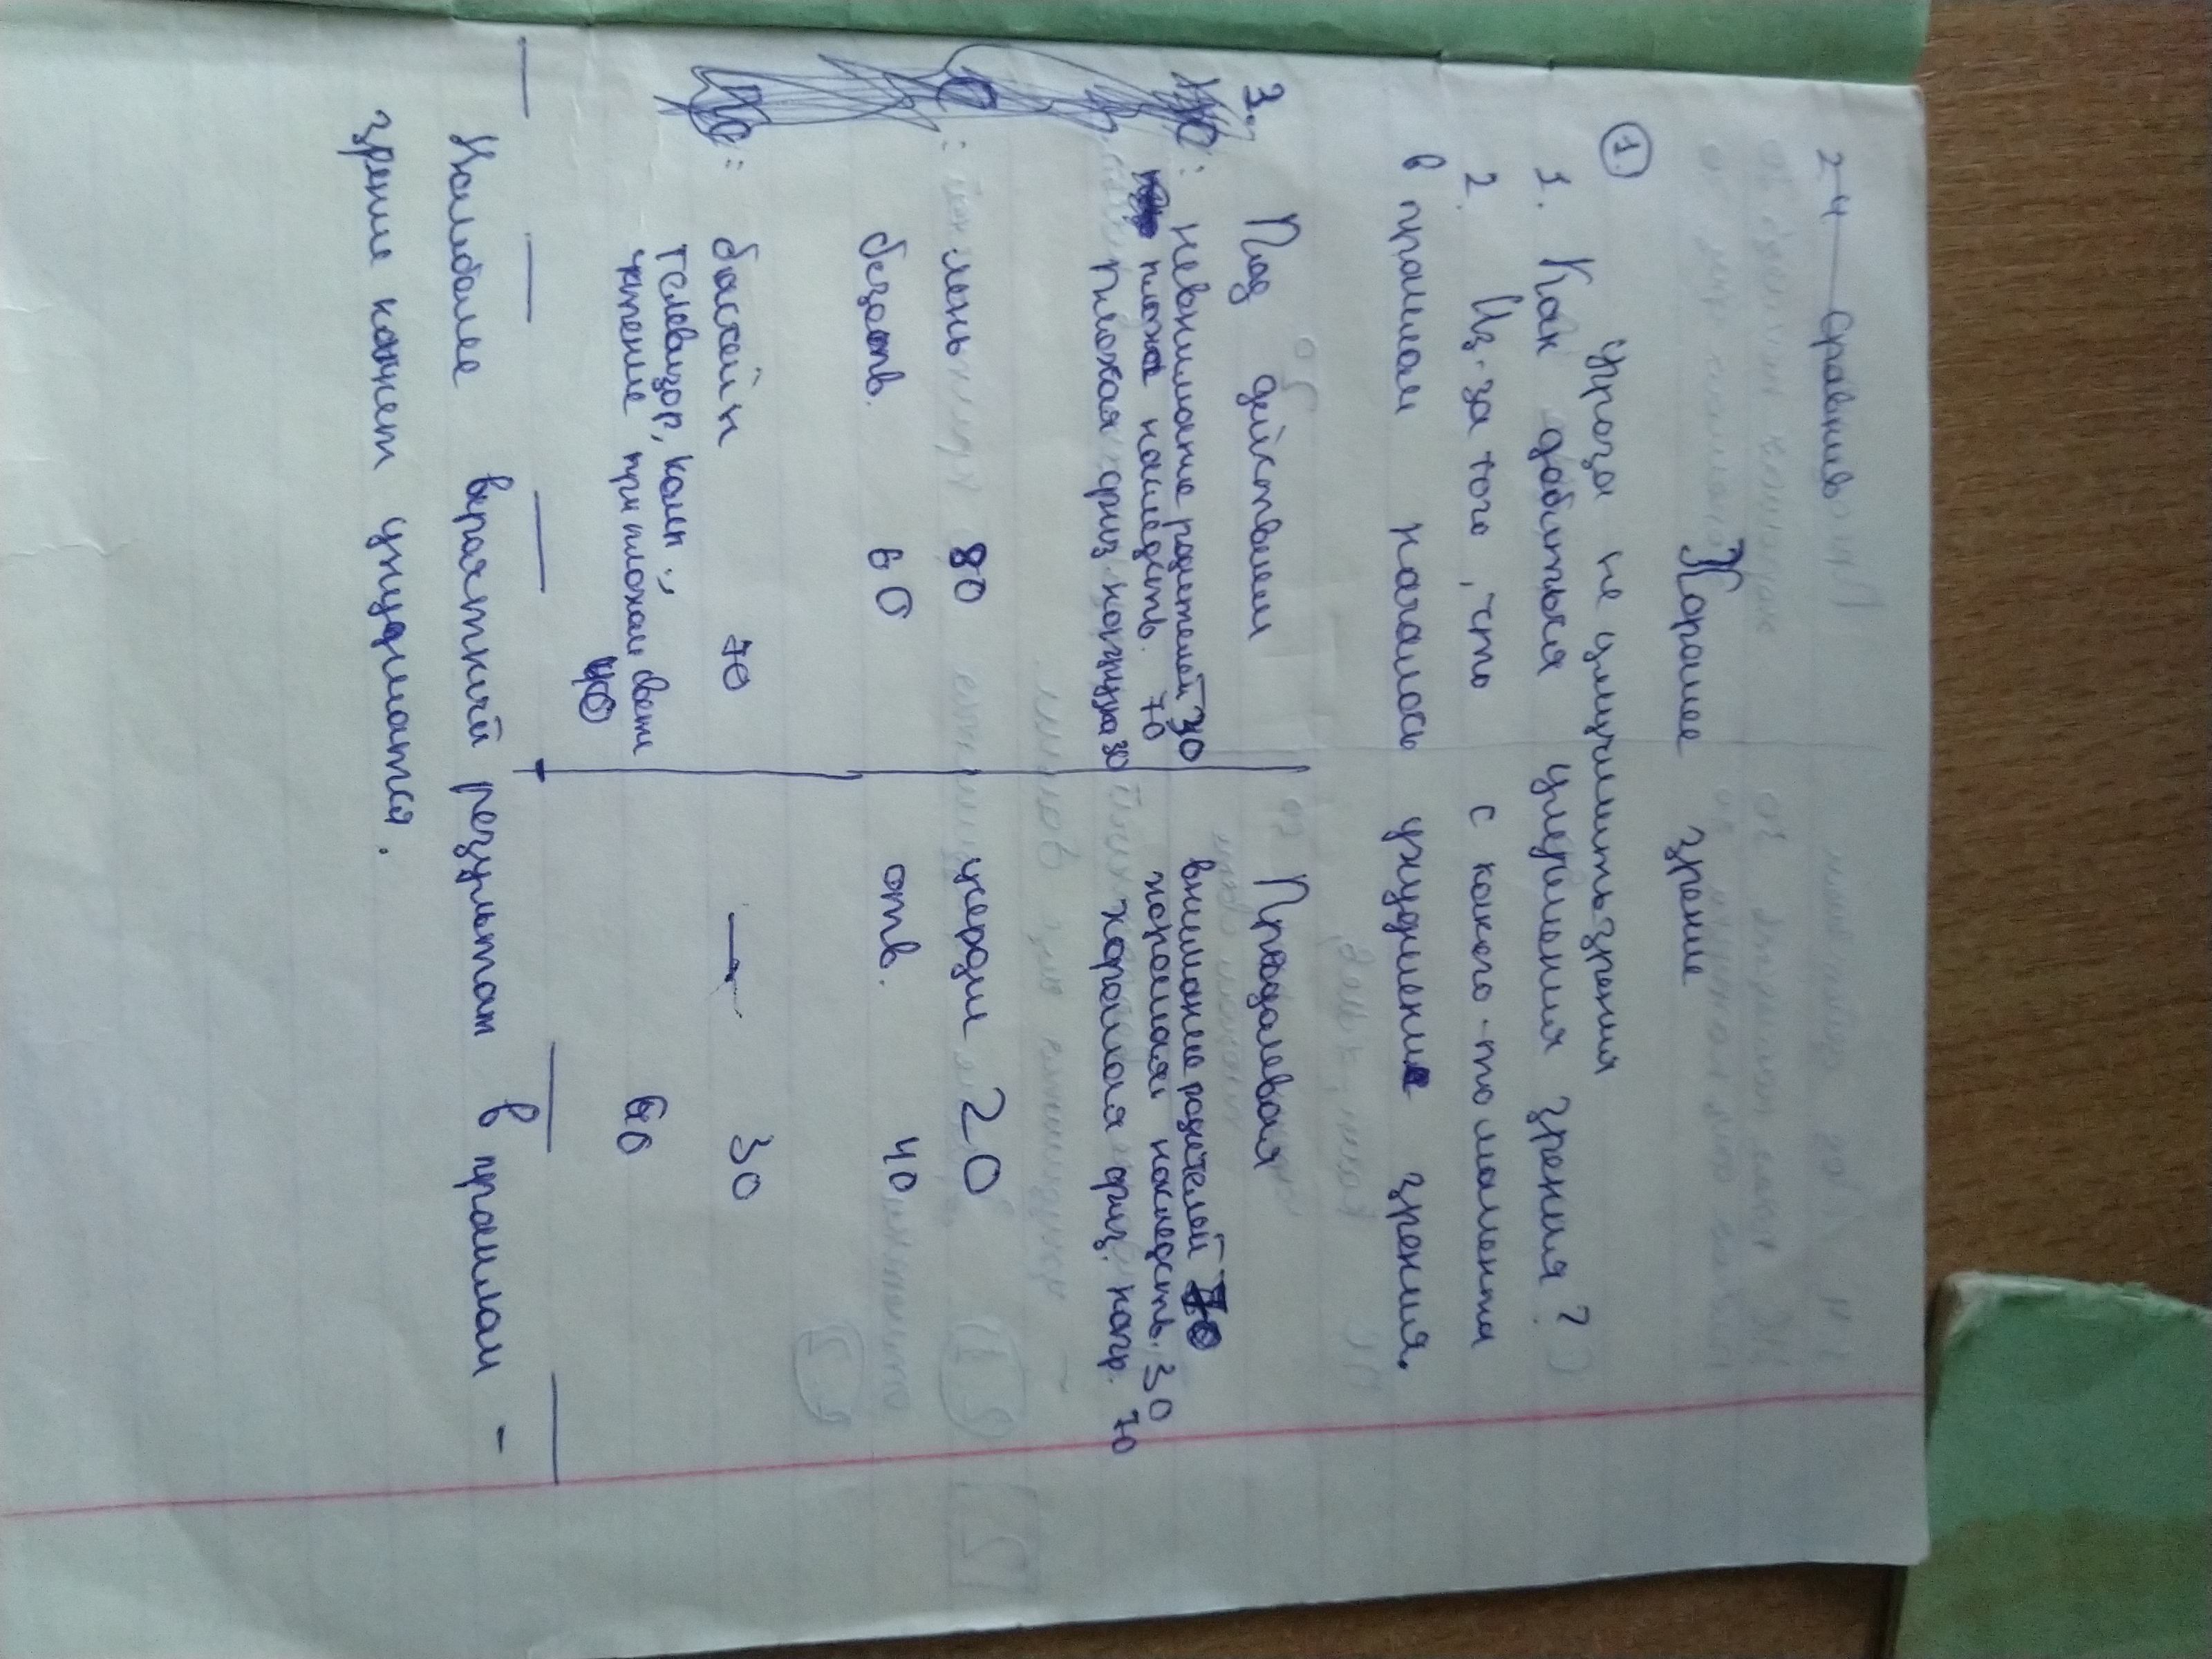 2-4 — сравнив
Хорошее зрение
① Угроза не улучшить зрения
1. Как добиться улучшения зрения?
2. Из-за того, что с какого-то момента
в прошлом началось ухудшение зрения.
3. Под действием
Продолевая
: невнимание родителей 30
внимание родителей 70
плохая наследств. 70
хорошая наследств. 30
плохая физ нагрузка 30
хорошая физ. нагр. 70
: лень 80
энергии 20
безотв. 60
отв. 40
: бассейн 70
— 30
телевизор, комп.,
чтение при плохом свете
40
60
Наиболее вероятный результат в прошлом -
зрение может ухудшиться.